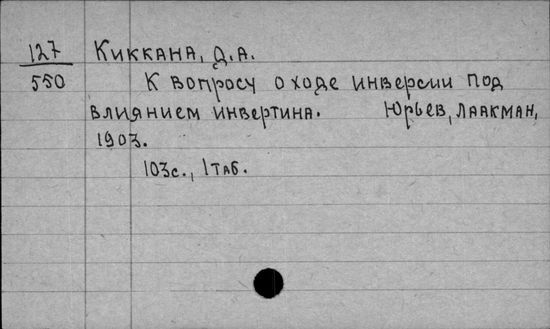 127 Киккана, Д.А.
550 К вопросу о ходе инверсии под
влиянием инвертина. Юрьев, Лаакман,
1903.
103с., 1 таб.